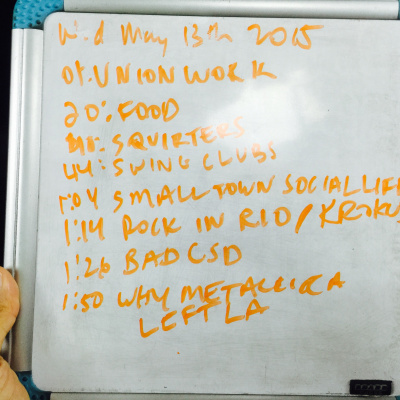 Wed May 13th 2015
01: UNION WORK
20: FOOD
SQUIRTERS
44: SWING CLUBS
1:04 SMALL TOWN SOCIAL LIFE
1:14 ROCK IN RIO / KROKUS
1:26 BAD CSD
1:50 WHY METALLICA
LEFT LA